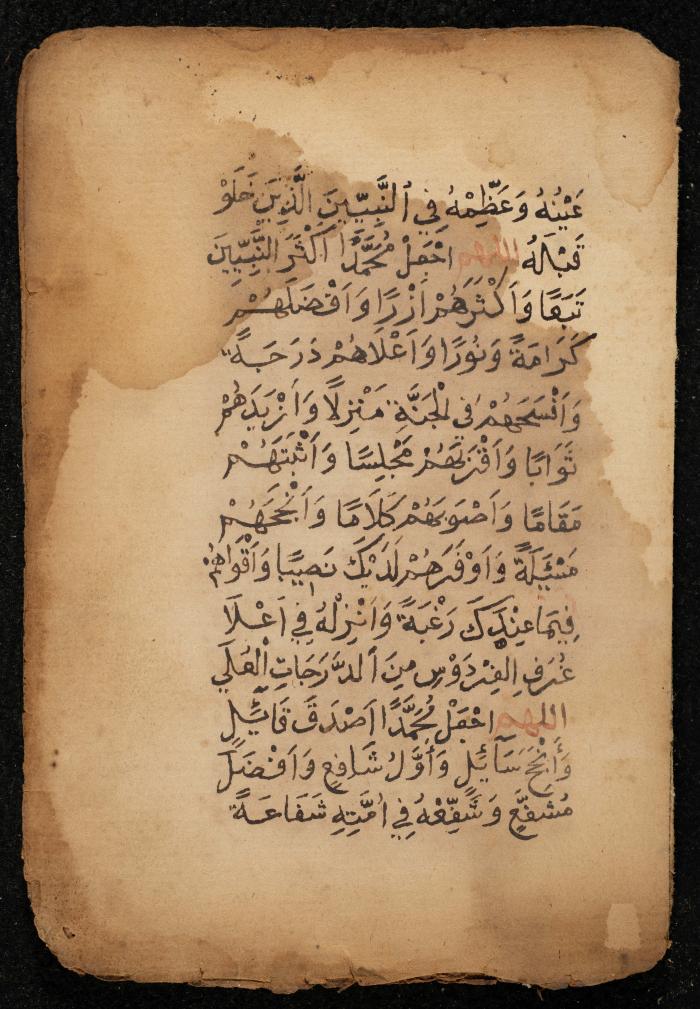 عَيْنُهُ وَعَظِّمْهُ فِي ٱلنَّبِيّينَ الَّذِينَ خَلَوْ
قَبْلَهُ اللهم اجْعَلْ مُحَمَّدًا اَكْثَرَ النَّبِيّينَ
تَبَعًا وَاَكْثَرَهُمْ اَزْرًا وَاَفْضَلَهُمْ
كَرَامَةً وَنُورًا وَاَعْلَاهُمْ دَرَجَةً
وَاَفْسَحَهُمْ فِي الْجَنَّةِ مَنْزِلًا وَاَزْيَدَهُمْ
ثَوَابًا وَاَقْرَبَهُمْ مَجْلِسًا وَاَثْبَتَهُمْ
مَقَامًا وَاَصْوَبَهُمْ كَلَامًا وَاَنْجَحَهُمْ
مَسْئَلَةً وَاَوْفَرَهُمْ لَدَيْكَ نَصِيبًا وَاَقْوَاهُمْ
فِيمَا عِنْدَكَ رَغْبَةً وَاَنْزِلْهُ فِي اَعْلَا
غُرَفِ الفِرْدَوْسِ مِنَ ٱلدَّرَجَاتِ الْعُلَي
اللهم اجْعَلْ مُحَمَّدًا اَصْدَقَ قَائِلٍ
وَأَنْجَحَ سَآئِلٍ وَأَوَّلُ شَافِعٍ وَاَفْضَلَ
مُشَفَّعٍ وَشَفِّعْهُ فِي اُمَّتِهِ شَفَاعَةً